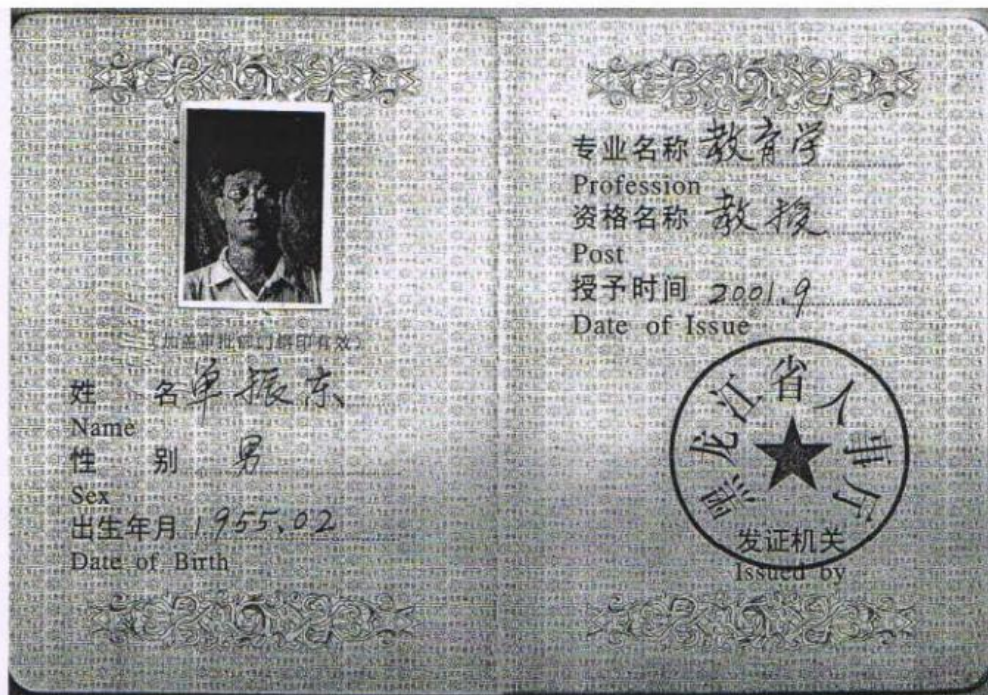 (加盖审批部门钢印有效)
姓 名 单振东
Name
性 别 男
Sex
出生年月 1955.02
Date of Birth
专业名称 教育学
Profession
资格名称 教授
Post
授予时间 2001.9
Date of Issue
黑龙江省人事厅
发证机关
Issued by